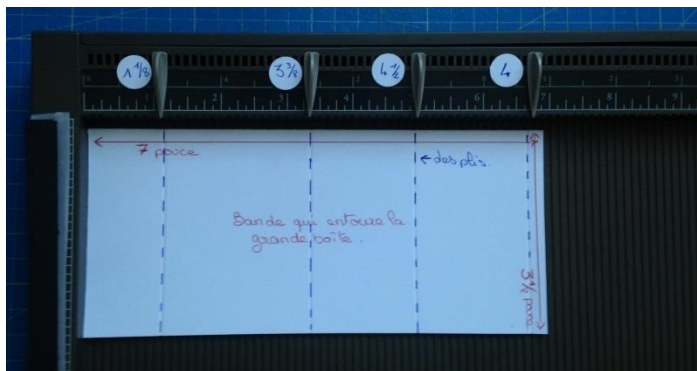 1 1/8
3 3/8
4 1/2
4
1
2
3
4
5
6
7
8
9
7 pouce
← des plis.
Bande qui entoure la
grande boîte.
3 1/2 pouce